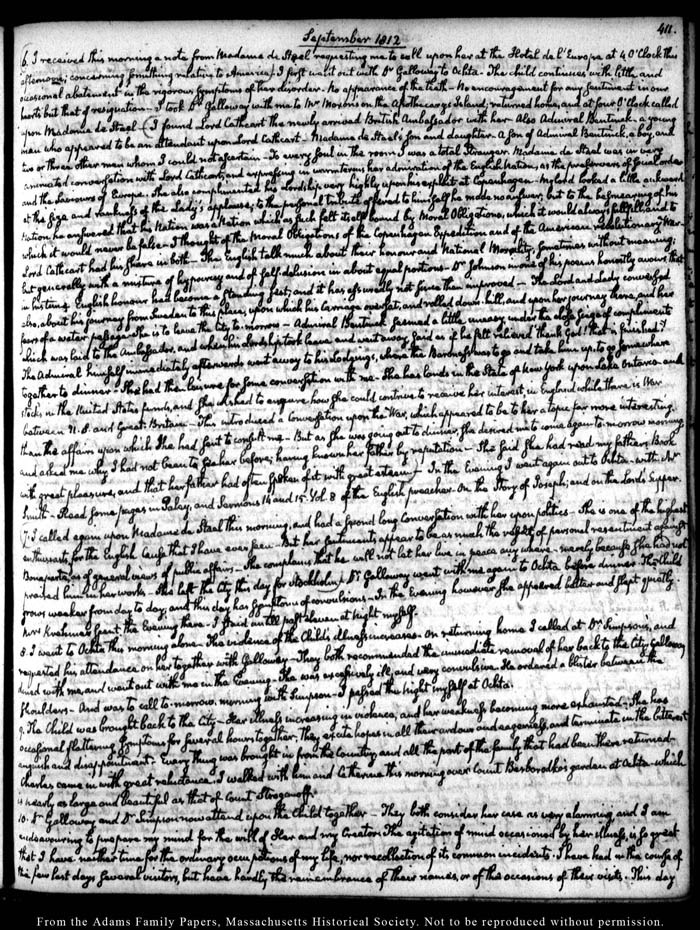 411.
September 1812
6. I received this morning a note from Madame de Stael requesting me to call upon her at the Hotel de l'Europe at 4 O'Clock this
afternoon; concerning something relating to America. I first went out with Dr Galloway to Ochta - The child continues with little, and
occasional abatement in the rigorous symptoms of her disorder. No appearance of the teeth - No encouragement for any sentiment in our
hearts but that of resignation - I took Dr Galloway with me to Mr Morison's on the Apothecary's Island; returned home, and at four O'Clock called
upon Madame de Stael - I found Lord Cathcart the newly arrived British Ambassador with her. Also Admiral Bentinck - a young
man who appeared to be an attendant upon Lord Cathcart - Madame de Stael's Son and daughter. A Son of Admiral Bentinck, a boy, and
two or three other men whom I could not ascertain. To every soul in the room I was a total stranger. Madame de Stael was in very
animated conversation with Lord Cathcart, and expressing in warm terms her admiration of the English Nation, as the preservers of social order
and the Saviours of Europe. She also complimented his Lordship very highly upon his exploit at Copenhagen. My Lord looked a little awkward
at the size and rankness of the Lady's applause; to the personal tribute offered to himself he made no answer, but to the besmearing of his
Nation, he answered that his Nation was a Nation which as such felt itself bound by Moral Obligations, which it would always fulfill, and to
which it would never be false. I thought of the Moral Obligations of the Copenhagen Expedition and of the American revolutionary War -
Lord Cathcart had his share in both. The English talk much about their honour and National Morality; sometimes without meaning;
but generally with a mixture of hypocrisy and of self-delusion in about equal portions - Dr Johnson in one of his poems honestly avows that
in his time English honour had become a standing jest, and it has assuredly not since then improved - The Lord and Lady conversed
also, about his journey from Sweden to this place, upon which his Carriage overset, and rolled down hill, and upon her journey there, and her
fears of a water passage. She is to leave the City to-morrow - Admiral Bentinck seemed a little uneasy under the close siege of compliments
which was laid to the Ambassador, and when his Lordship took leave and went away, said as if he felt relieved "thank God! that is finished."
The Admiral himself immediately afterwards went away to his lodgings, where the Baroness was to go and take him up to go somewhere
together to dinner. She had then leisure for some conversation with me. She has lands in the State of New York upon Lake Ontario and
stocks in the United States funds, and she wished to enquire how she could continue to receive her interest, in England while there is War
between U.S. and Great Britain - This introduced a Conversation upon the War, which appeared to be to her a topic far more interesting
than the affairs upon which She had sent to consult me. But as she was going out to dinner, she desired me to come again to-morrow morning
and asked me why I had not been to see her before; having known her father by reputation - She said She had read my father's Book
with great pleasure, and that her father had often spoken of it with great esteem. In the Evening I went again out to Ochta with Mr
Smith - Read some pages in Paley, and Sermons 14 and 15. Vol. 8 of the English preacher. On the Story of Joseph; and on the Lord's Supper.
7. I called again upon Madame de Stael this morning, and had a second long Conversation with her upon politics - She is one of the highest
enthusiasts for the English Cause that I have ever seen - But her sentiments appear to be as much the result of personal resentment against
Bonaparte, as of general views of public affairs. She complains that he will not let her live in peace any where - merely because She had not
praised him in her works - She left the City this day for Stockholm. Dr Galloway went with me again to Ochta before dinner. The Child
grows weaker from day to day, and this day has symptoms of convulsions. In the Evening however she appeared better and slept quietly.
Mrs Krehmer spent the Evening there - I staid untill past eleven at Night myself.
8. I went to Ochta this morning alone. The violence of the Child's illness increases. On returning home I called at Dr Simpson's, and
requested his attendance on her together with Galloway. They both recommended the immediate removal of her back to the City. Galloway
dined with me and went out with me in the Evening. She was excessively ill, and very convulsive. He ordered a blister between the
Shoulders. And was to call to-morrow morning with Simpson. I passed the night myself at Ochta.
9. The Child was brought back to the City - Her illness increasing in violence, and her weakness becoming more exhausted. She has
occasional flattering symptoms for several hours together. They excite hopes in all their ardour and eagerness, and terminate in the bitterest
anguish and disappointment. Every thing was brought in from the Country and all the part of the family that had been there returned.
Charles came in with great reluctance. I walked with him and Catherine this morning over Count Besborodko's garden at Ochta - which
is nearly as large and beautiful as that of Count Stroganoff.
10. Dr Galloway and Dr Simpson now attend upon the Child together - They both consider her case as very alarming, and I am
endeavouring to prepare my mind for the will of Her and my Creator. The agitation of mind occasioned by her illness, is so great
that I have neither time for the ordinary occupations of my life, nor recollection of its common incidents. I have had in the course of
the few last days several visitors, but have hardly the remembrance of their names, or of the occasions of their visits. This day
From the Adams Family Papers, Massachusetts Historical Society. Not to be reproduced without permission.